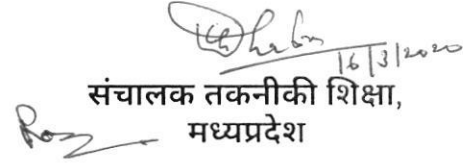 16/3/2020
संचालक तकनीकी शिक्षा,
मध्यप्रदेश